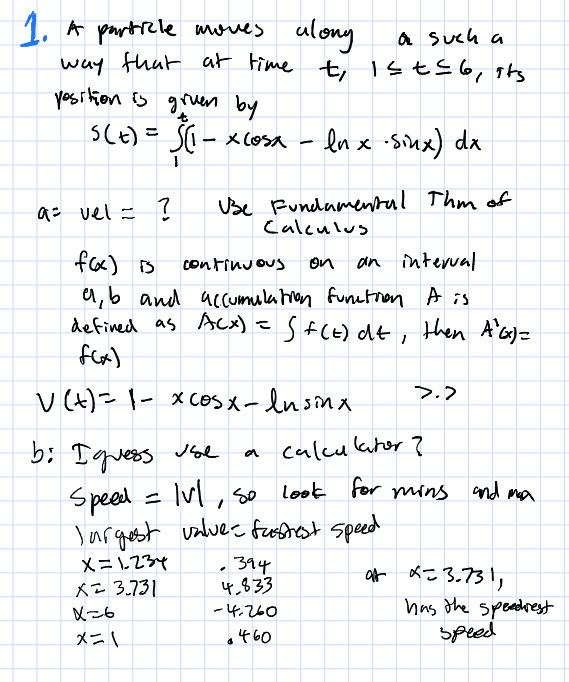 1. A particle moves along a such a
way that at time t, 1 ≤ t ≤ 6, its
position is given by
s(t) = ∫₁ᵗ(1 - xcosx - ln x · sinx) dx
a = vel = ? Use Fundamental Thm of
Calculus
f(x) is continuous on an interval
a, b and accumulation function A is
defined as A(x) = ∫ f(t) dt, then A'(x)=
f(x)
V(t) = 1 - xcosx - ln sinx >.>
b: I guess use a calculator?
Speed = |v|, so look for mins and max
largest value = fastest speed
x = 1.234 .394
x = 3.731 4.833
x = 6 -4.260
x = 1 .460
at x = 3.731,
has the speediest
speed